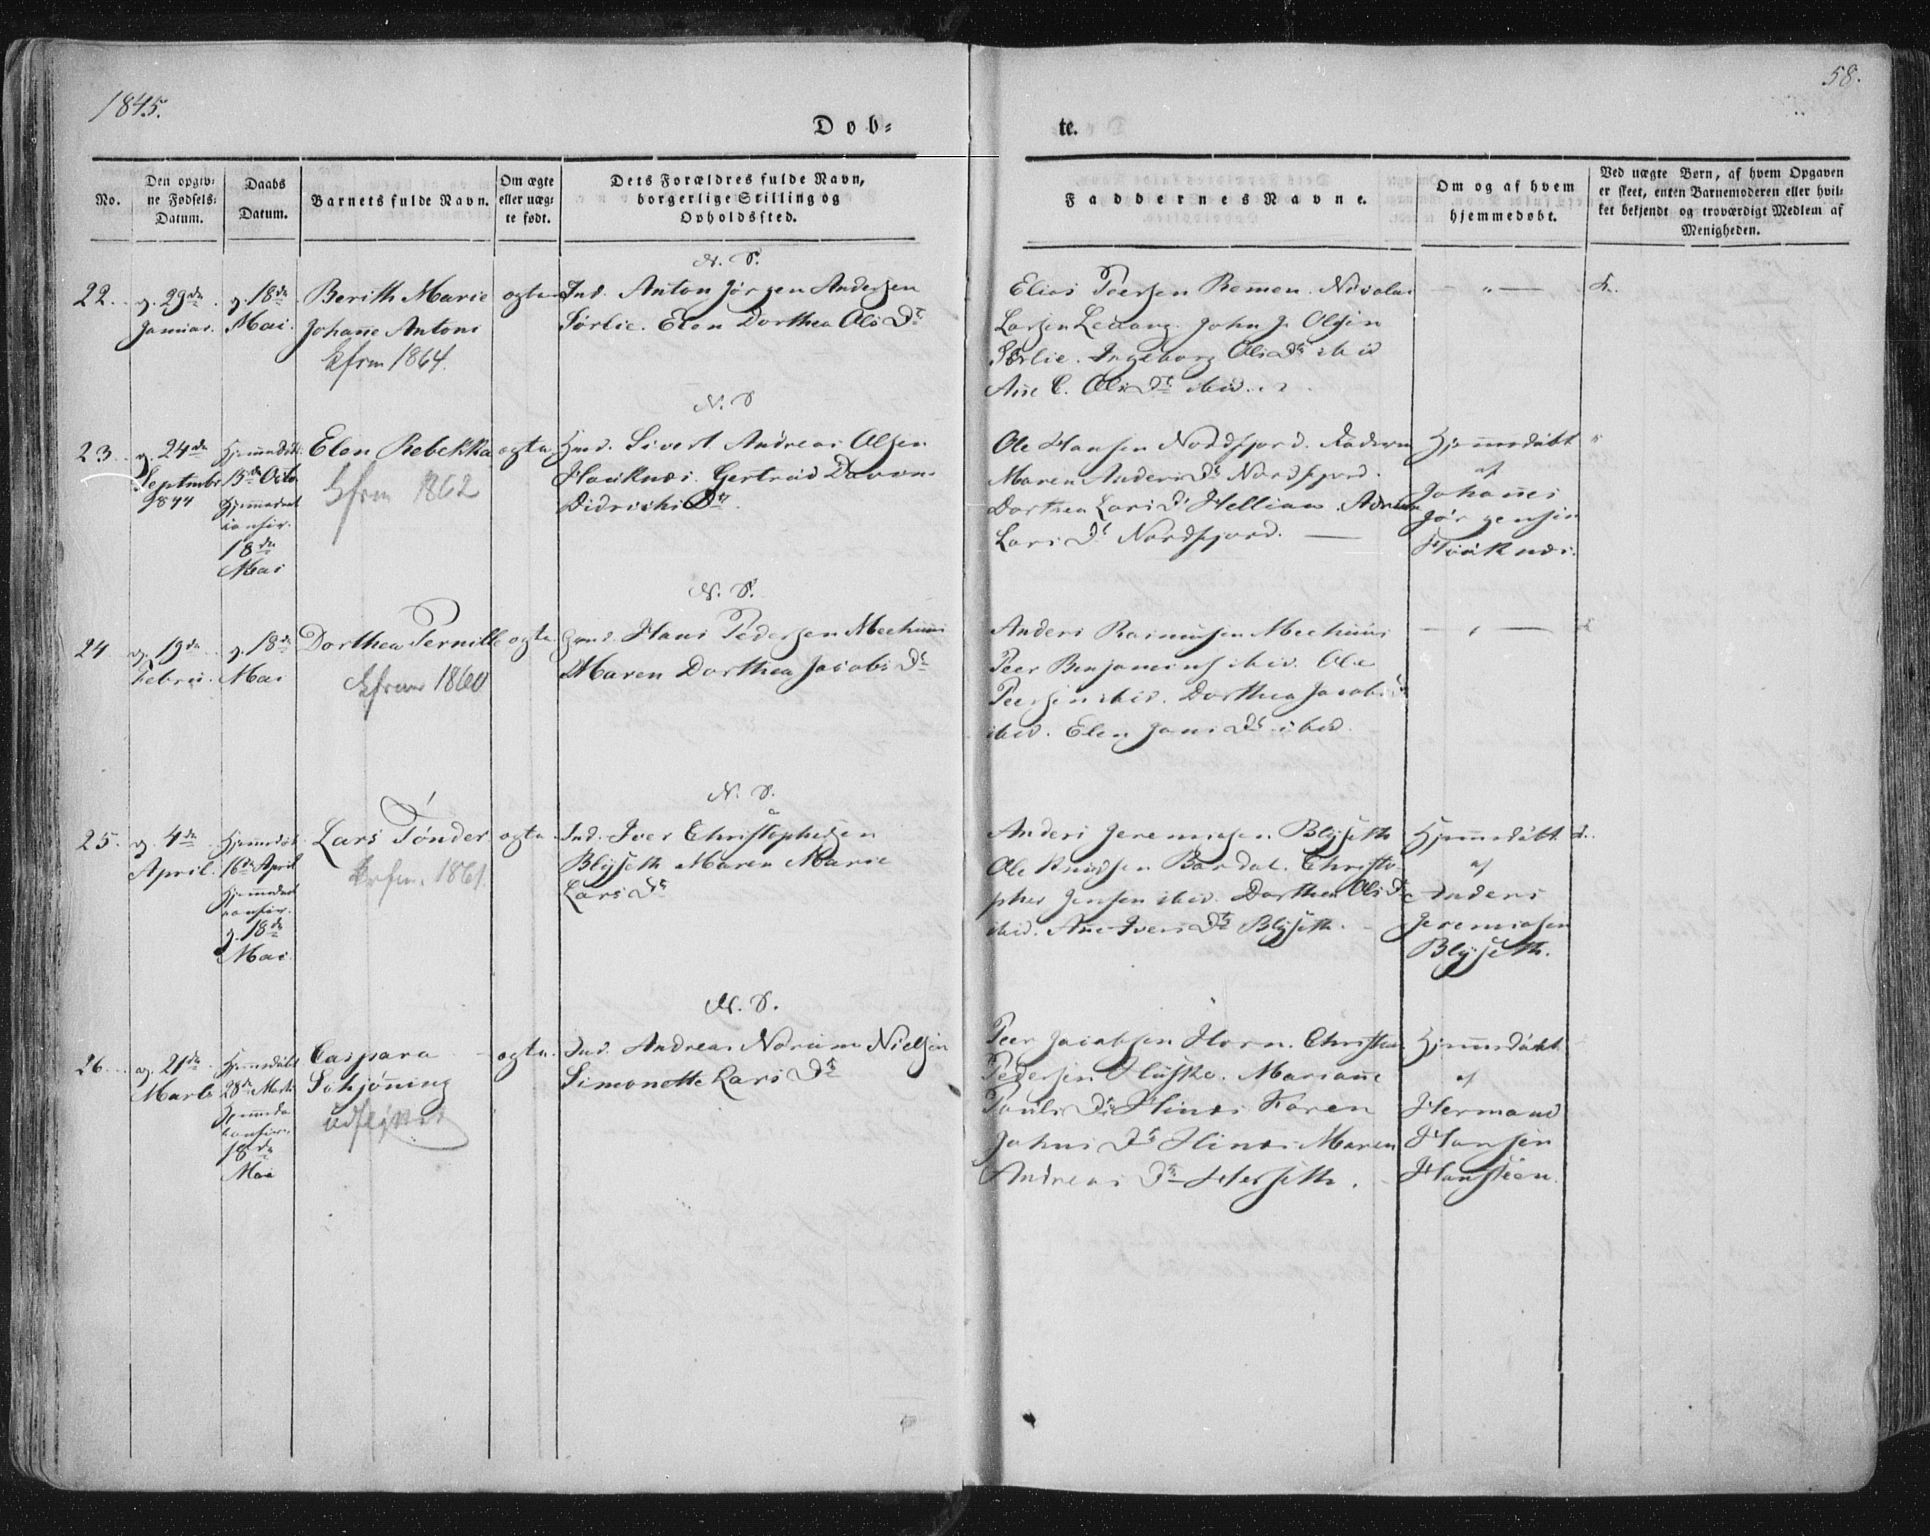 1845.
58.
Dob=
te.
No.
Den opgiv=
ne Fødsels=
Datum.
Daabs
Datum.
Barnets fulde Navn.
Om ægte
eller uæg=
te født.
Dets Forældres fulde Navn,
borgerlige Stilling og
Opholdssted.
Faddernes Navne.
Om og af hvem
hjemmedøbt.
Ved uægte Børn, af hvem Opgaven
er skeet, enten Barnemoderen eller hvil=
ket bekjendt og troværdigt Medlem af
Menigheden.
N. S.
22.
29de
Januar.
18de
Mai.
Berith Marie
Johane Antoni
Cfrm 1864.
ægte
Ind. Anton Jørgen Andersen
Sørlie. Elen Dorthea Ols Dt
Elias Peersen Remen. Nicolai
Larsen Levang. John J. Olsen
Sørlie. Ingeborg Ols Dt ibid
Ane C. Ols Dt ibid.
N. S
23.
24de
Septmbr
1844
Hjemmedøbt
13de Octb.
Hjemmedaab
confir.
18de
Mai
Elen Rebekka
Cfrm 1862
ægte
Sivert Andreas Olsen
Haviknæs. Gertrud
Didrichs Dt.
Ole Hansen Nordfjord.
Maren Anders Dt Nordfjord.
Dorthea Lars Dt
Lars Dt Nordfjord.
Hjemmedøbt
af
Johannes
Jørgensen
N. S.
24
19de
Febru.
18de
Mai
Dorthea Pernille
Cfrm 1860
ægte
Hans Pedersen
Maren Dorthea Jacobs Dt
Anders Rasmusen
Peer Benjamins ibid. Ole
Peersen ibid. Dorthea Jacobs Dt
ibid. Elen Jans Dt ibid.
N. S.
25.
4de
April.
Hjemmedøbt
16de April
Hjemmedaab
confir.
18de
Mai.
Lars Tønder
1861.
ægte
Ind. Iver Christophersen
Blyseth Maren Marie
Lars Dt
Anders Jeremiasen Blyseth
Ole Knudsen Bardal. Christo-
pher Jensen ibid. Dorthea Ols Dt
ibid. Ane Ivers Dt Blyseth.
Hjemmedøbt
af
Anders
Jeremiasen
Blyseth.
N. S.
26.
21de
Marts
Hjemmedøbt
28de Marts
Hjemmeda
confir.
18de
Mai
Caspara
Schjøning
udflyttet
ægte.
Ind. Andreas Norum Nielsen
Simonette Lars Dt
Peer Jacobsen Horn. Christen
Pedersen Mariane
Pouls Dt Karen
Johns Dt Maren
Andreas Dt Herseth.
Hjemmedøbt
af
Hermand
Hansen
Hansteen.